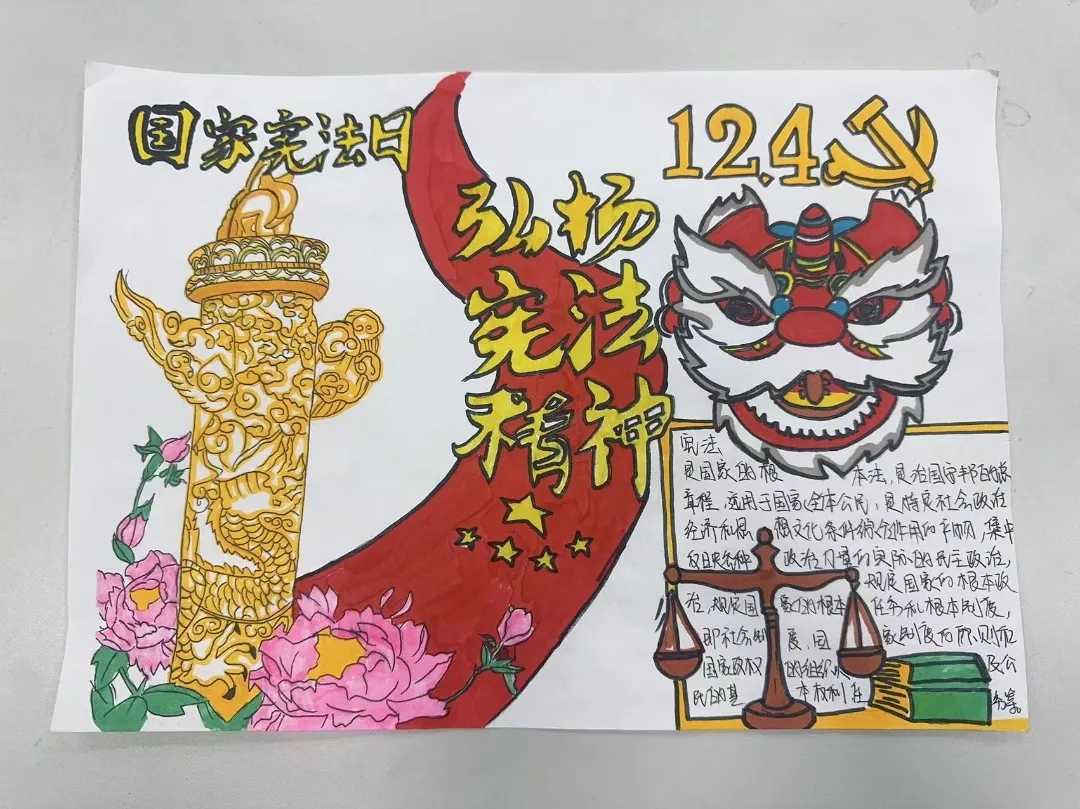 国家宪法日
12.4
弘扬
宪法
精神
宪法
是国家的根本法，是治国安邦的总
章程，适用于国家全体公民，是特定社会政治
经济和思想文化条件综合作用的产物，集中
反映各种政治力量的实际的民主政治，
规定国家的根本政
治，规定国家的根本任务和根本制度，
即社会制度、国家制度的原则和
国家政权的组织以及公
民的基本权利任
务等。